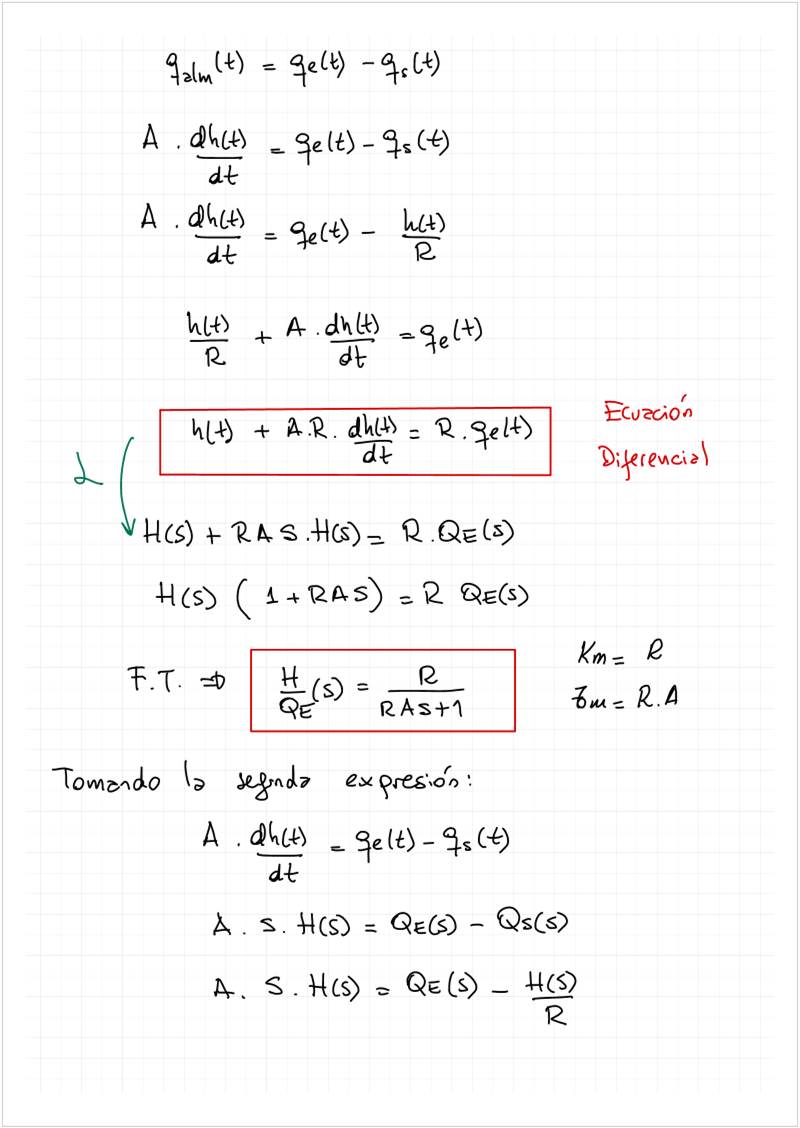 q_alm(t) = qe(t) - qs(t)
A . dh(t)/dt = qe(t) - qs(t)
A . dh(t)/dt = qe(t) - h(t)/R
h(t)/R + A . dh(t)/dt = qe(t)
h(t) + A.R. dh(t)/dt = R . qe(t)
Ecuación
Diferencial
L
H(s) + RAS.H(s) = R.QE(s)
H(s) (1 + RAS) = R QE(s)
F.T. ⇒ H/QE (s) = R/(RAS+1)
Km = R
τm = R.A
Tomando la segunda expresión:
A . dh(t)/dt = qe(t) - qs(t)
A . S . H(s) = QE(s) - QS(s)
A . S . H(s) = QE(s) - H(s)/R